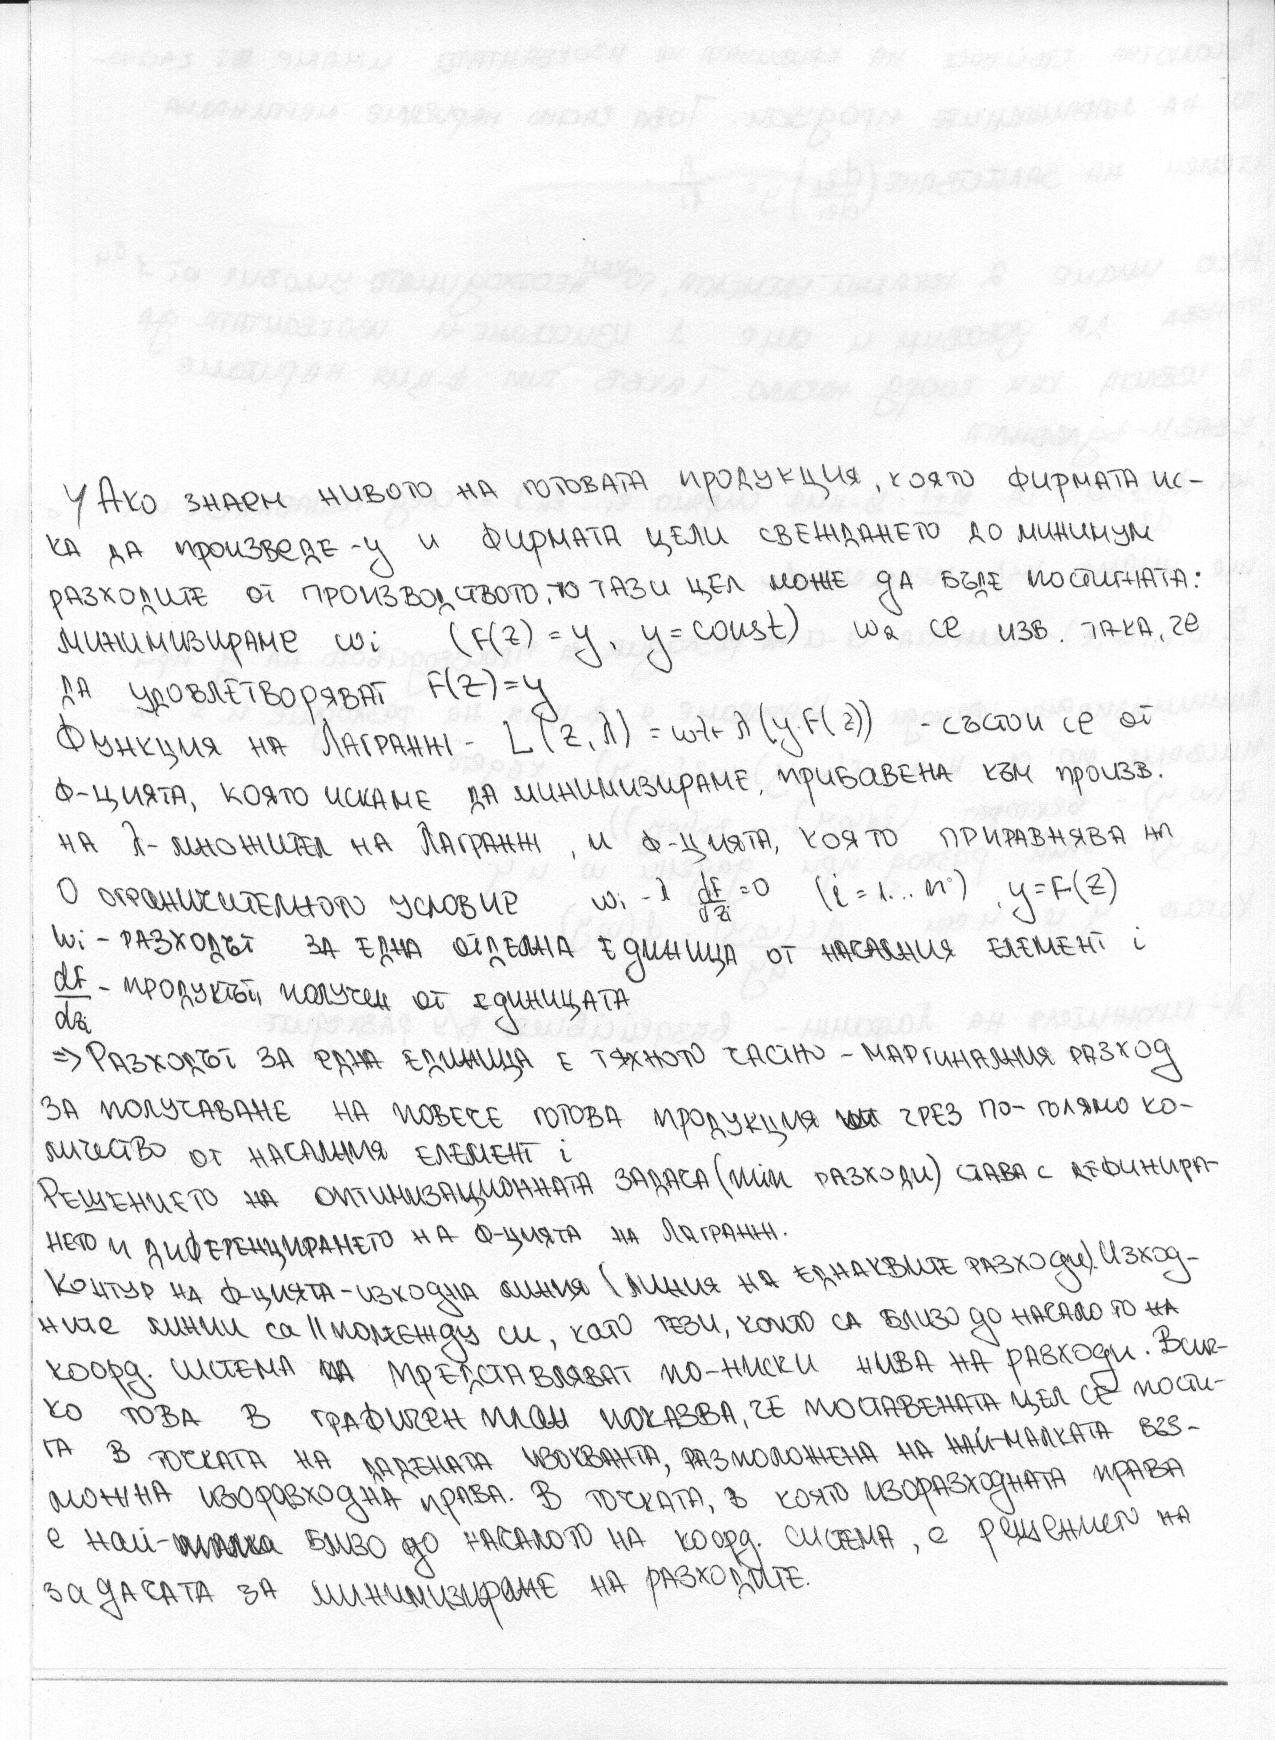 4/ Ако знаем нивото на готовата продукция, която фирмата ис-
ка да произведе -y и фирмата цели свеждането до минимум
разходите от производството, то тази цел може да бъде постигната:
минимизираме wi (F(z) = y, y = const) се изв. така, че
да удовлетворяват F(z) = y
Функция на Лагранж - L(z, λ) = wz+ λ(y-F(z)) - състои се от
ф-цията, която искаме да минимизираме, прибавена към произв.
на λ - множител на Лагранж, и ф-цията, която приравнява на
0 ограничителното условие wi - λ dF/dzi = 0 (i = 1... n), y = F(z)
wi - разходът за една отделна единица от началния елемент i
dF/dzi - продуктът, получен от единицата
=> Разходът за една единица е тяхното частно - маргиналния разход
за получаване на повече готова продукция чрез по-голямо ко-
личество от началния елемент i
Решението на оптимизационната задача (min разходи) става с дефинира-
нето и диференцирането на ф-цията на Лагранж.
Контур на ф-цията - изходна линия (линия на еднаквите разходи). Изход-
ните линии са || помежду си, като тези, които са близо до началото на
коорд. система представляват по-ниски нива на разходи. Всич-
ко това в графичен план показва, че поставената цел се пости-
га в точката на дадената изокванта, разположена на най-малката въз-
можна изоразходна права. В точката, в която изоразходната права
е най- близо до началото на коорд. система, е решението на
задачата за минимизиране на разходите.